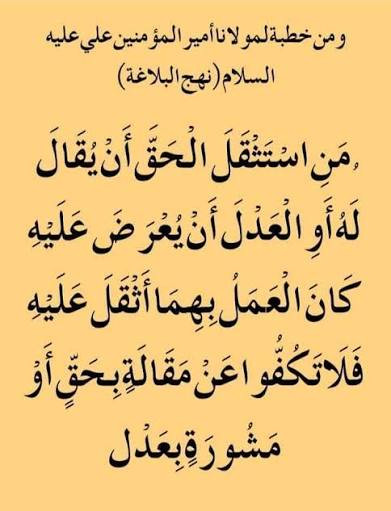 ومن خطبة لمولانا أمير المؤمنين علي عليه
السلام (نهج البلاغة)
مَنِ اسْتَثْقَلَ الْحَقَّ أَنْ يُقَالَ
لَهُ أَوِ الْعَدْلَ أَنْ يُعْرَضَ عَلَيْهِ
كَانَ الْعَمَلُ بِهِمَا أَثْقَلَ عَلَيْهِ
فَلَا تَكُفُّوا عَنْ مَقَالَةٍ بِحَقٍّ أَوْ
مَشُورَةٍ بِعَدْل